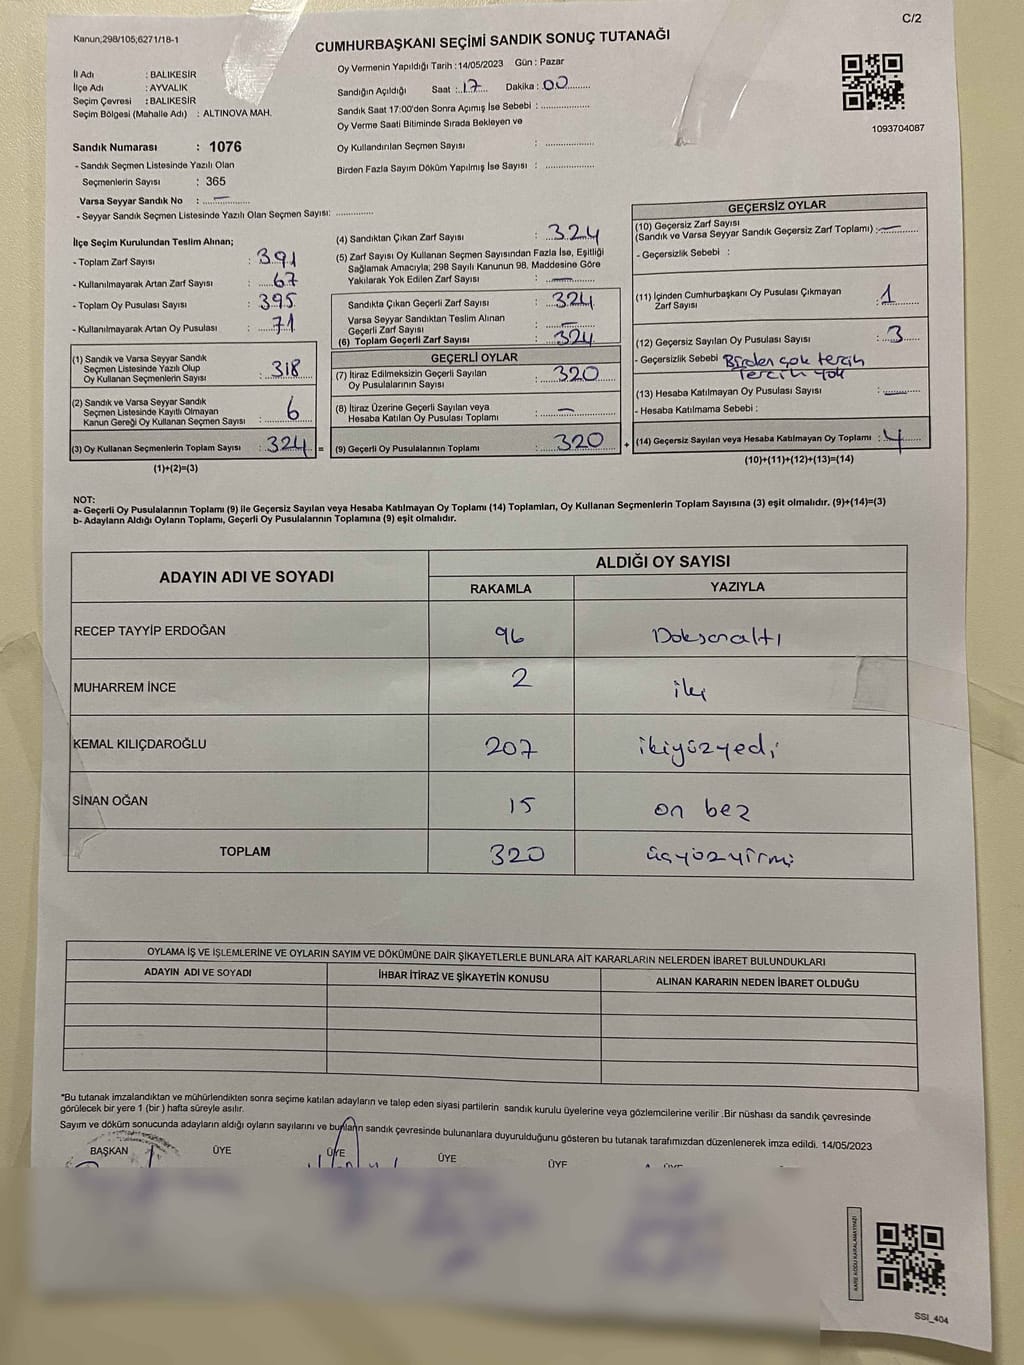 Kanun;298/105;6271/18-1
C/2
CUMHURBAŞKANI SEÇİMİ SANDIK SONUÇ TUTANAĞI
İl Adı : BALIKESİR
İlçe Adı : AYVALIK
Seçim Çevresi : BALIKESİR
Seçim Bölgesi (Mahalle Adı) : ALTINOVA MAH.
Sandık Numarası : 1076
- Sandık Seçmen Listesinde Yazılı Olan
Seçmenlerin Sayısı : 365
Varsa Seyyar Sandık No : —
- Seyyar Sandık Seçmen Listesinde Yazılı Olan Seçmen Sayısı: ..............
Oy Vermenin Yapıldığı Tarih :14/05/2023 Gün : Pazar
Sandığın Açıldığı Saat :.17.... Dakika :.00.........
Sandık Saat 17:00'den Sonra Açımış İse Sebebi : ..................
Oy Verme Saati Bitiminde Sırada Bekleyen ve
Oy Kullandırılan Seçmen Sayısı : ..................
Birden Fazla Sayım Döküm Yapılmış İse Sayısı : ..................
1093704087
İlçe Seçim Kurulundan Teslim Alınan;
- Toplam Zarf Sayısı : 391
- Kullanılmayarak Artan Zarf Sayısı : 67
- Toplam Oy Pusulası Sayısı : 395
- Kullanılmayarak Artan Oy Pusulası : 71
(1) Sandık ve Varsa Seyyar Sandık
Seçmen Listesinde Yazılı Olup
Oy Kullanan Seçmenlerin Sayısı : 318
(2) Sandık ve Varsa Seyyar Sandık
Seçmen Listesinde Kayıtlı Olmayan
Kanun Gereği Oy Kullanan Seçmen Sayısı : 6
(3) Oy Kullanan Seçmenlerin Toplam Sayısı : 324 =
(1)+(2)=(3)
(4) Sandıktan Çıkan Zarf Sayısı : 324
(5) Zarf Sayısı Oy Kullanan Seçmen Sayısından Fazla İse, Eşitliği
Sağlamak Amacıyla; 298 Sayılı Kanunun 98. Maddesine Göre
Yakılarak Yok Edilen Zarf Sayısı : —
Sandıkta Çıkan Geçerli Zarf Sayısı : 324
Varsa Seyyar Sandıktan Teslim Alınan
Geçerli Zarf Sayısı : —
(6) Toplam Geçerli Zarf Sayısı : 324
GEÇERLİ OYLAR
(7) İtiraz Edilmeksizin Geçerli Sayılan
Oy Pusulalarının Sayısı : 320
(8) İtiraz Üzerine Geçerli Sayılan veya
Hesaba Katılan Oy Pusulası Toplamı : —
(9) Geçerli Oy Pusulalarının Toplamı : 320 +
GEÇERSİZ OYLAR
(10) Geçersiz Zarf Sayısı
(Sandık ve Varsa Seyyar Sandık Geçersiz Zarf Toplamı) : —
- Geçersizlik Sebebi :
(11) İçinden Cumhurbaşkanı Oy Pusulası Çıkmayan
Zarf Sayısı : 1
(12) Geçersiz Sayılan Oy Pusulası Sayısı : 3
- Geçersizlik Sebebi Birden çok tercih
Tercih yok
(13) Hesaba Katılmayan Oy Pusulası Sayısı : ..........
- Hesaba Katılmama Sebebi :
(14) Geçersiz Sayılan veya Hesaba Katılmayan Oy Toplamı : 4
(10)+(11)+(12)+(13)=(14)
NOT:
a- Geçerli Oy Pusulalarının Toplamı (9) ile Geçersiz Sayılan veya Hesaba Katılmayan Oy Toplamı (14) Toplamları, Oy Kullanan Seçmenlerin Toplam Sayısına (3) eşit olmalıdır. (9)+(14)=(3)
b- Adayların Aldığı Oyların Toplamı, Geçerli Oy Pusulalarının Toplamına (9) eşit olmalıdır.
ADAYIN ADI VE SOYADI
ALDIĞI OY SAYISI
RAKAMLA YAZIYLA
RECEP TAYYİP ERDOĞAN 96 Doksanaltı
MUHARREM İNCE 2 iki
KEMAL KILIÇDAROĞLU 207 ikiyüzyedi
SİNAN OĞAN 15 on beş
TOPLAM 320 üçyüzyirmi
OYLAMA İŞ VE İŞLEMLERİNE VE OYLARIN SAYIM VE DÖKÜMÜNE DAİR ŞİKAYETLERLE BUNLARA AİT KARARLARIN NELERDEN İBARET BULUNDUKLARI
ADAYIN ADI VE SOYADI İHBAR İTİRAZ VE ŞİKAYETİN KONUSU ALINAN KARARIN NEDEN İBARET OLDUĞU
*Bu tutanak imzalandıktan ve mühürlendikten sonra seçime katılan adayların ve talep eden siyasi partilerin sandık kurulu üyelerine veya gözlemcilerine verilir .Bir nüshası da sandık çevresinde
görülecek bir yere 1 (bir ) hafta süreyle asılır.
Sayım ve döküm sonucunda adayların aldığı oyların sayılarını ve bunların sandık çevresinde bulunanlara duyurulduğunu gösteren bu tutanak tarafımızdan düzenlenerek imza edildi. 14/05/2023
BAŞKAN ÜYE ÜYE ÜYE ÜYE
SSI_404